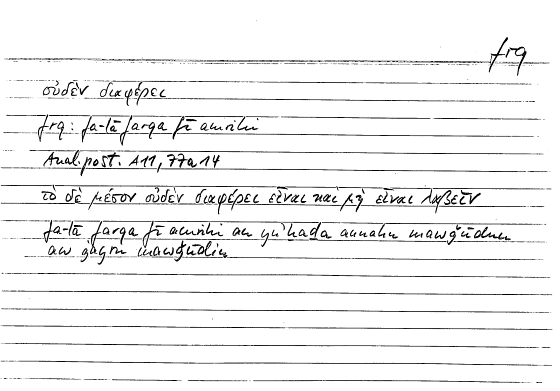 frq
οὐδὲν διαφέρει
frq: fa-lā farqa fī amrihi
Anal. post. A11, 77a14
τὸ δὲ μέσον οὐδὲν διαφέρει εἶναι καὶ μὴ εἶναι λαβεῖν
fa-lā farqa fī amrihi an yuʾḫaḏa annahu mawǧūdun
aw ġayru mawǧūdin